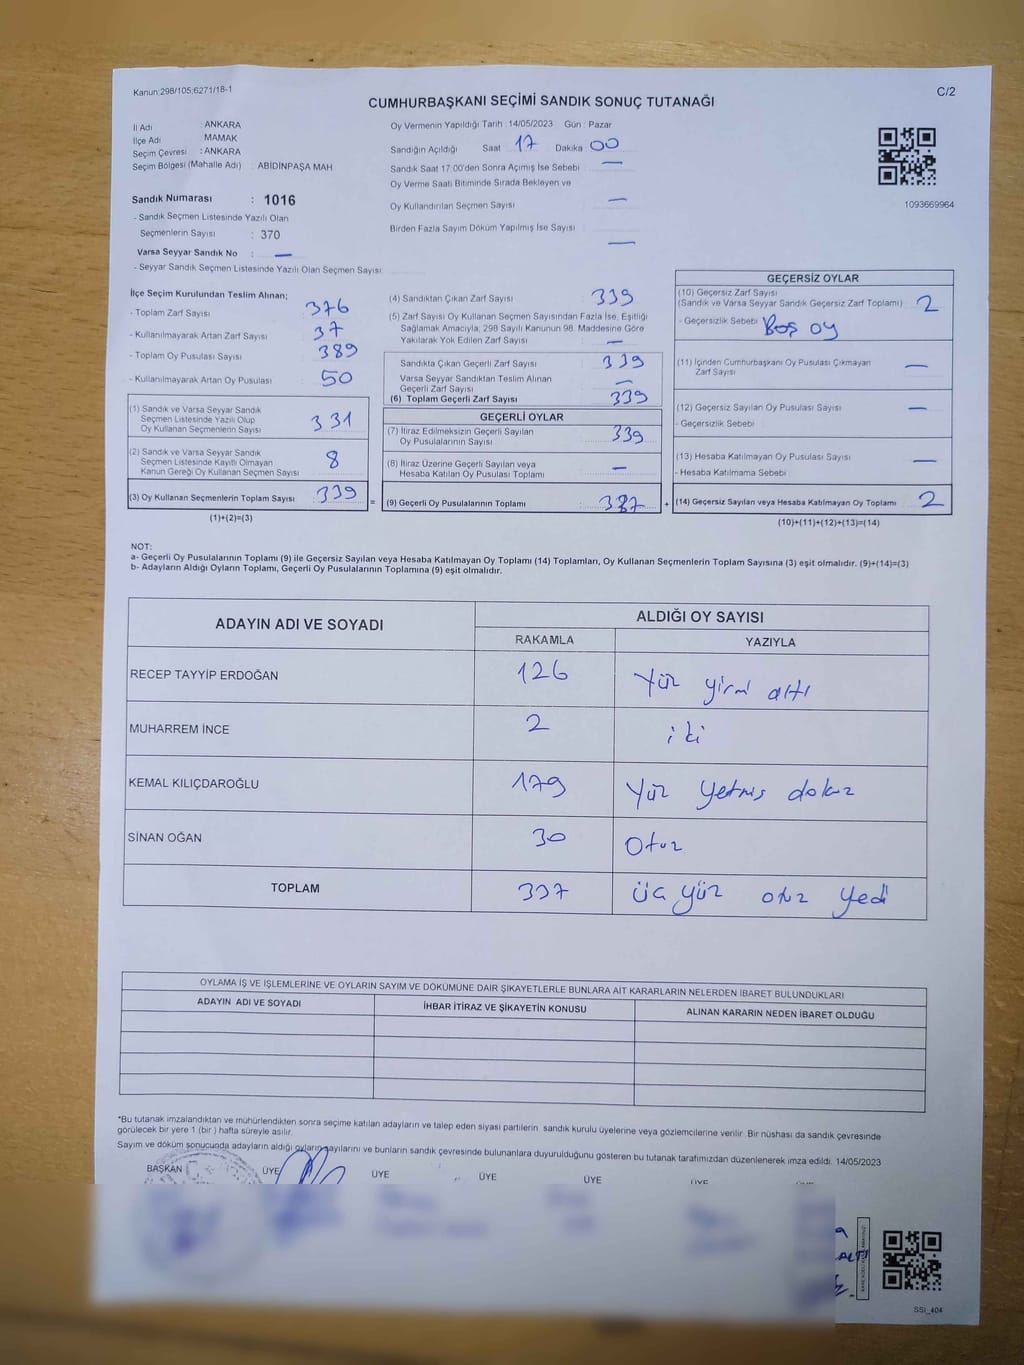 Kanun:298/105;6271/18-1
C/2
CUMHURBAŞKANI SEÇİMİ SANDIK SONUÇ TUTANAĞI
İl Adı : ANKARA
İlçe Adı : MAMAK
Seçim Çevresi : ANKARA
Seçim Bölgesi (Mahalle Adı) : ABİDİNPAŞA MAH
Sandık Numarası : 1016
- Sandık Seçmen Listesinde Yazılı Olan
Seçmenlerin Sayısı : 370
Varsa Seyyar Sandık No : —
- Seyyar Sandık Seçmen Listesinde Yazılı Olan Seçmen Sayısı:
Oy Vermenin Yapıldığı Tarih : 14/05/2023 Gün : Pazar
Sandığın Açıldığı Saat 17 Dakika : 00
Sandık Saat 17:00'den Sonra Açımış İse Sebebi : —
Oy Verme Saati Bitiminde Sırada Bekleyen ve
Oy Kullandırılan Seçmen Sayısı : —
Birden Fazla Sayım Döküm Yapılmış İse Sayısı : —
1093669964
İlçe Seçim Kurulundan Teslim Alınan;
- Toplam Zarf Sayısı : 376
- Kullanılmayarak Artan Zarf Sayısı : 37
- Toplam Oy Pusulası Sayısı : 389
- Kullanılmayarak Artan Oy Pusulası : 50
(1) Sandık ve Varsa Seyyar Sandık
Seçmen Listesinde Yazılı Olup
Oy Kullanan Seçmenlerin Sayısı : 331
(2) Sandık ve Varsa Seyyar Sandık
Seçmen Listesinde Kayıtlı Olmayan
Kanun Gereği Oy Kullanan Seçmen Sayısı : 8
(3) Oy Kullanan Seçmenlerin Toplam Sayısı : 339 =
(1)+(2)=(3)
(4) Sandıktan Çıkan Zarf Sayısı : 339
(5) Zarf Sayısı Oy Kullanan Seçmen Sayısından Fazla İse, Eşitliği
Sağlamak Amacıyla, 298 Sayılı Kanunun 98. Maddesine Göre
Yakılarak Yok Edilen Zarf Sayısı : —
Sandıkta Çıkan Geçerli Zarf Sayısı : 339
Varsa Seyyar Sandıktan Teslim Alınan
Geçerli Zarf Sayısı : —
(6) Toplam Geçerli Zarf Sayısı : 339
GEÇERLİ OYLAR
(7) İtiraz Edilmeksizin Geçerli Sayılan
Oy Pusulalarının Sayısı : 339
(8) İtiraz Üzerine Geçerli Sayılan veya
Hesaba Katılan Oy Pusulası Toplamı : —
(9) Geçerli Oy Pusulalarının Toplamı : 337 +
GEÇERSİZ OYLAR
(10) Geçersiz Zarf Sayısı
(Sandık ve Varsa Seyyar Sandık Geçersiz Zarf Toplamı) : 2
- Geçersizlik Sebebi : Boş oy
(11) İçinden Cumhurbaşkanı Oy Pusulası Çıkmayan
Zarf Sayısı : —
(12) Geçersiz Sayılan Oy Pusulası Sayısı : —
- Geçersizlik Sebebi :
(13) Hesaba Katılmayan Oy Pusulası Sayısı : —
- Hesaba Katılmama Sebebi :
(14) Geçersiz Sayılan veya Hesaba Katılmayan Oy Toplamı : 2
(10)+(11)+(12)+(13)=(14)
NOT:
a- Geçerli Oy Pusulalarının Toplamı (9) ile Geçersiz Sayılan veya Hesaba Katılmayan Oy Toplamı (14) Toplamları, Oy Kullanan Seçmenlerin Toplam Sayısına (3) eşit olmalıdır. (9)+(14)=(3)
b- Adayların Aldığı Oyların Toplamı, Geçerli Oy Pusulalarının Toplamına (9) eşit olmalıdır.
ADAYIN ADI VE SOYADI
ALDIĞI OY SAYISI
RAKAMLA YAZIYLA
RECEP TAYYİP ERDOĞAN 126 Yüz yirmi altı
MUHARREM İNCE 2 iki
KEMAL KILIÇDAROĞLU 179 Yüz yetmiş dokuz
SİNAN OĞAN 30 Otuz
TOPLAM 337 üç yüz otuz yedi
OYLAMA İŞ VE İŞLEMLERİNE VE OYLARIN SAYIM VE DÖKÜMÜNE DAİR ŞİKAYETLERLE BUNLARA AİT KARARLARIN NELERDEN İBARET BULUNDUKLARI
ADAYIN ADI VE SOYADI İHBAR İTİRAZ VE ŞİKAYETİN KONUSU ALINAN KARARIN NEDEN İBARET OLDUĞU
*Bu tutanak imzalandıktan ve mühürlendikten sonra seçime katılan adayların ve talep eden siyasi partilerin sandık kurulu üyelerine veya gözlemcilerine verilir. Bir nüshası da sandık çevresinde
görülecek bir yere 1 (bir ) hafta süreyle asılır.
Sayım ve döküm sonucunda adayların aldığı oyların sayılarını ve bunların sandık çevresinde bulunanlara duyurulduğunu gösteren bu tutanak tarafımızdan düzenlenerek imza edildi. 14/05/2023
BAŞKAN ÜYE ÜYE ÜYE ÜYE ÜYE
SSİ_404